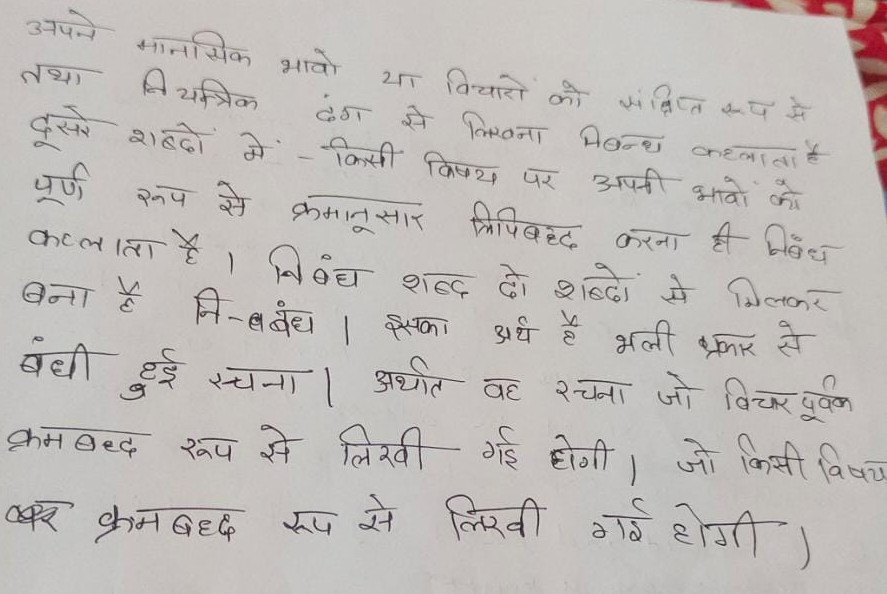 अपने मानसिक भावो या विचारों को संक्षिप्त रूप से
तथा नियत्रिक ढंग से लिखना निबन्ध कहलाता है
दूसरे शब्दों में - किसी विषय पर अपनी भावों को
पूर्ण रूप से क्रमानूसार लिपिबद्द करना ही निबंध
कहलाता है । निबंध शब्द दो शब्दों से मिलकर
बना है नि-बबंध । इसका अर्थ है भली प्रकार से
बंधी हुई रचना । अर्थात वह रचना जो विचार पूर्वक
क्रमबद्द रूप से लिखी गई होगी । जो किसी विषय
पर क्रमबद्द रूप से लिखी गई होगी ।